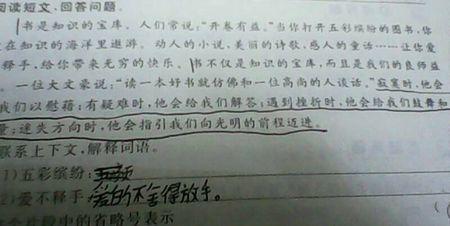 阅读短文，回答问题。
书是知识的宝库。人们常说：“开卷有益。”当你打开五彩缤纷的图书，你
在知识的海洋里遨游。动人的小说，美丽的诗歌，感人的童话……让你爱
释手，给你带来无穷的快乐。书不仅是知识的宝库，而且是我们的良师益
一位大文豪说：“读一本好书就仿佛和一位高尚的人谈话。”寂寞时，他会
我们以慰藉；有疑难时，他会给我们解答；遇到挫折时，他会给我们鼓舞和
量；迷失方向时，他会指引我们向光明的前程迈进。
联系上下文，解释词语。
(1)五彩缤纷：
(2)爱不释手：爱的不舍得放手。
个片段中的省略号表示